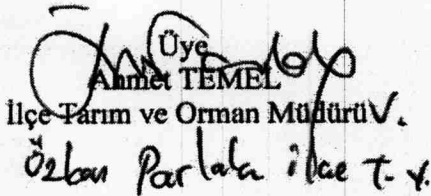 Üye
Ahmet TEMEL
İlçe Tarım ve Orman Müdürü V.
Özkan Parlak ilçe T. Y.